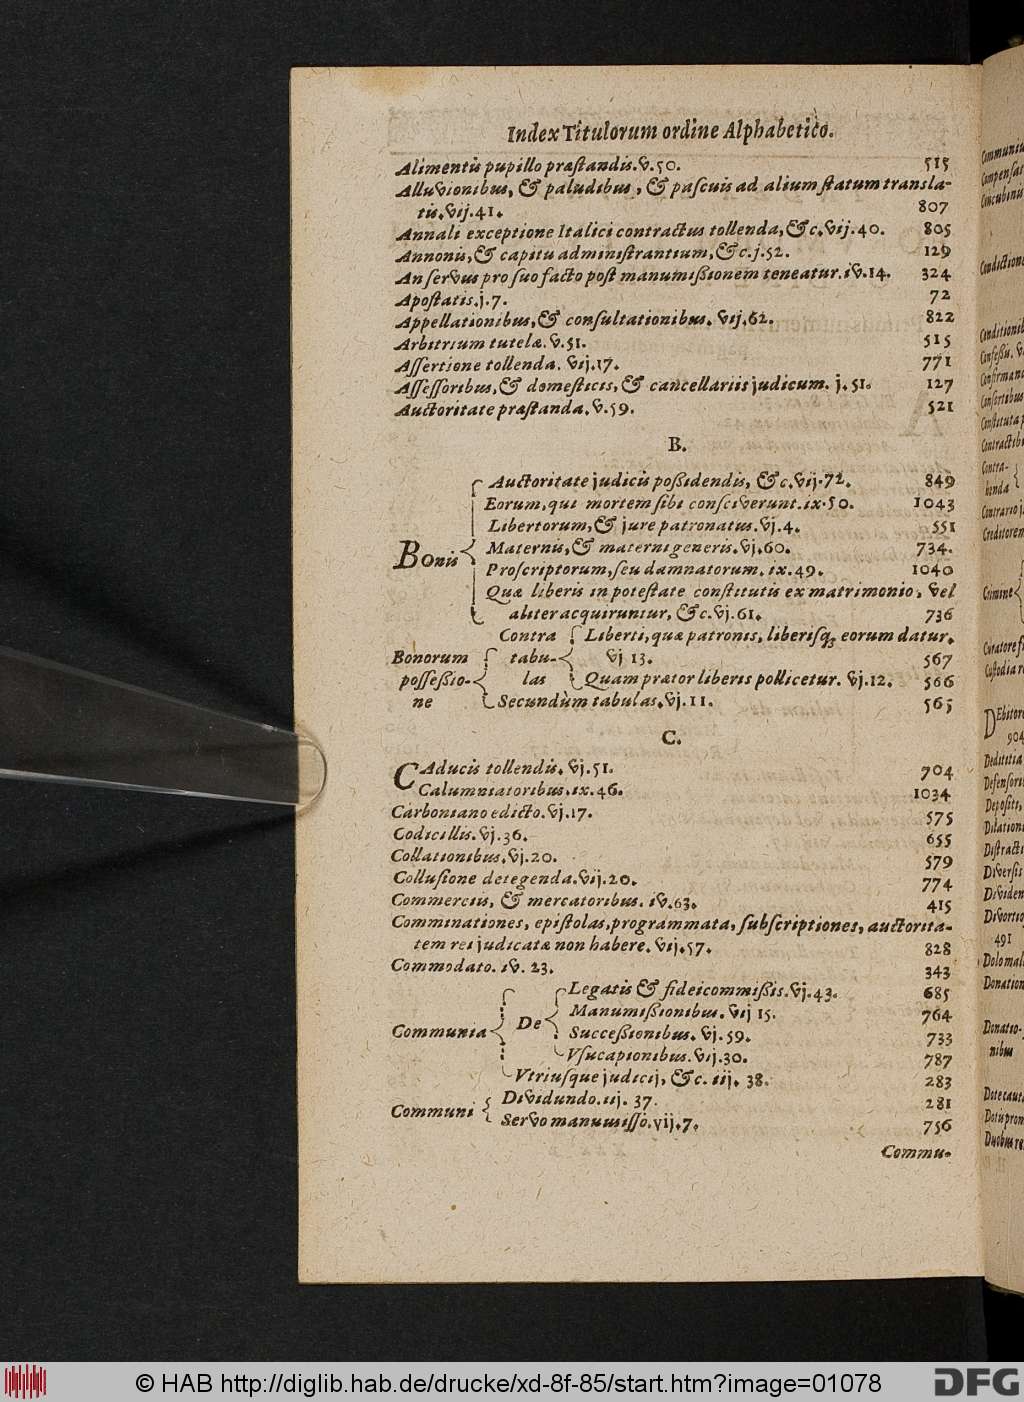 Index Titulorum ordine Alphabetico.
Alimentis pupillo præstandis. v. 50. 515
Alluvionibus, & paludibus, & pascuis ad alium statum transla-
tis. vij. 41. 807
Annali exceptione Italici contractus tollenda, &c. vij. 40. 805
Annonis, & capitu administrantium, &c. j. 52. 129
An servus pro suo facto post manumißionem teneatur. iv. 14. 324
Apostatis. j. 7. 72
Appellationibus, & consultationibus. vij. 62. 822
Arbitrium tutelæ. v. 51. 515
Assertione tollenda. vij. 17. 771
Assessoribus, & domesticis, & cancellariis judicum. j. 51. 127
Auctoritate præstanda. v. 59. 521
B.
Auctoritate judicis poßidendis, &c. vij. 72. 849
Eorum, qui mortem sibi consciverunt. ix. 50. 1043
Libertorum, & jure patronatus. vj. 4. 551
Bonis
Maternis, & materni generis. vj. 60. 734.
Proscriptorum, seu damnatorum. ix. 49. 1040
Quæ liberis in potestate constitutis ex matrimonio, vel
aliter acquiruntur, &c. vj. 61. 736
Contra Liberti, quæ patronis, liberisq; eorum datur.
Bonorum tabu- vj 13. 567
possessio- las Quam prætor liberis pollicetur. vj. 12. 566
ne Secundùm tabulas. vj. 11. 565
C.
CAducis tollendis. vj. 51. 704
Calumniatoribus. ix. 46. 1034
Carboniano edicto. vj. 17. 575
Codicillis. vj. 36. 655
Collationibus. vj. 20. 579
Collusione detegenda. vij. 20. 774
Commerciis, & mercatoribus. iv. 63. 415
Comminationes, epistolas, programmata, subscriptiones, auctorita-
tem rei judicatæ non habere. vij. 57. 828
Commodato. iv. 23. 343
Legatis & fideicommißis. vj. 43. 685
Manumißionibus. vij 15. 764
Communia De
Succeßionibus. vj. 59. 733
Vsucapionibus. vij. 30. 787
Vtriusque judicij, &c. iij. 38. 283
Communi Dividundo. iij. 37. 281
Servo manumisso. vij. 7. 756
Commu-
Compensat
Concubinis
Condictione
Confirmand
Consortibus
Contra-
henda
Contrario j
Creditorem
Crimine
Curatore f
Custodia r
DEbitor
904
Deditetia
Defensoris
Depositi,
Dilationi
Distracti
Diversis
Dividen
Divortio
491
Dolo mal
Donation
Donatio-
nibus
Dote cauta
Dotis prom
Duobus re
© HAB http://diglib.hab.de/drucke/xd-8f-85/start.htm?image=01078
DFG